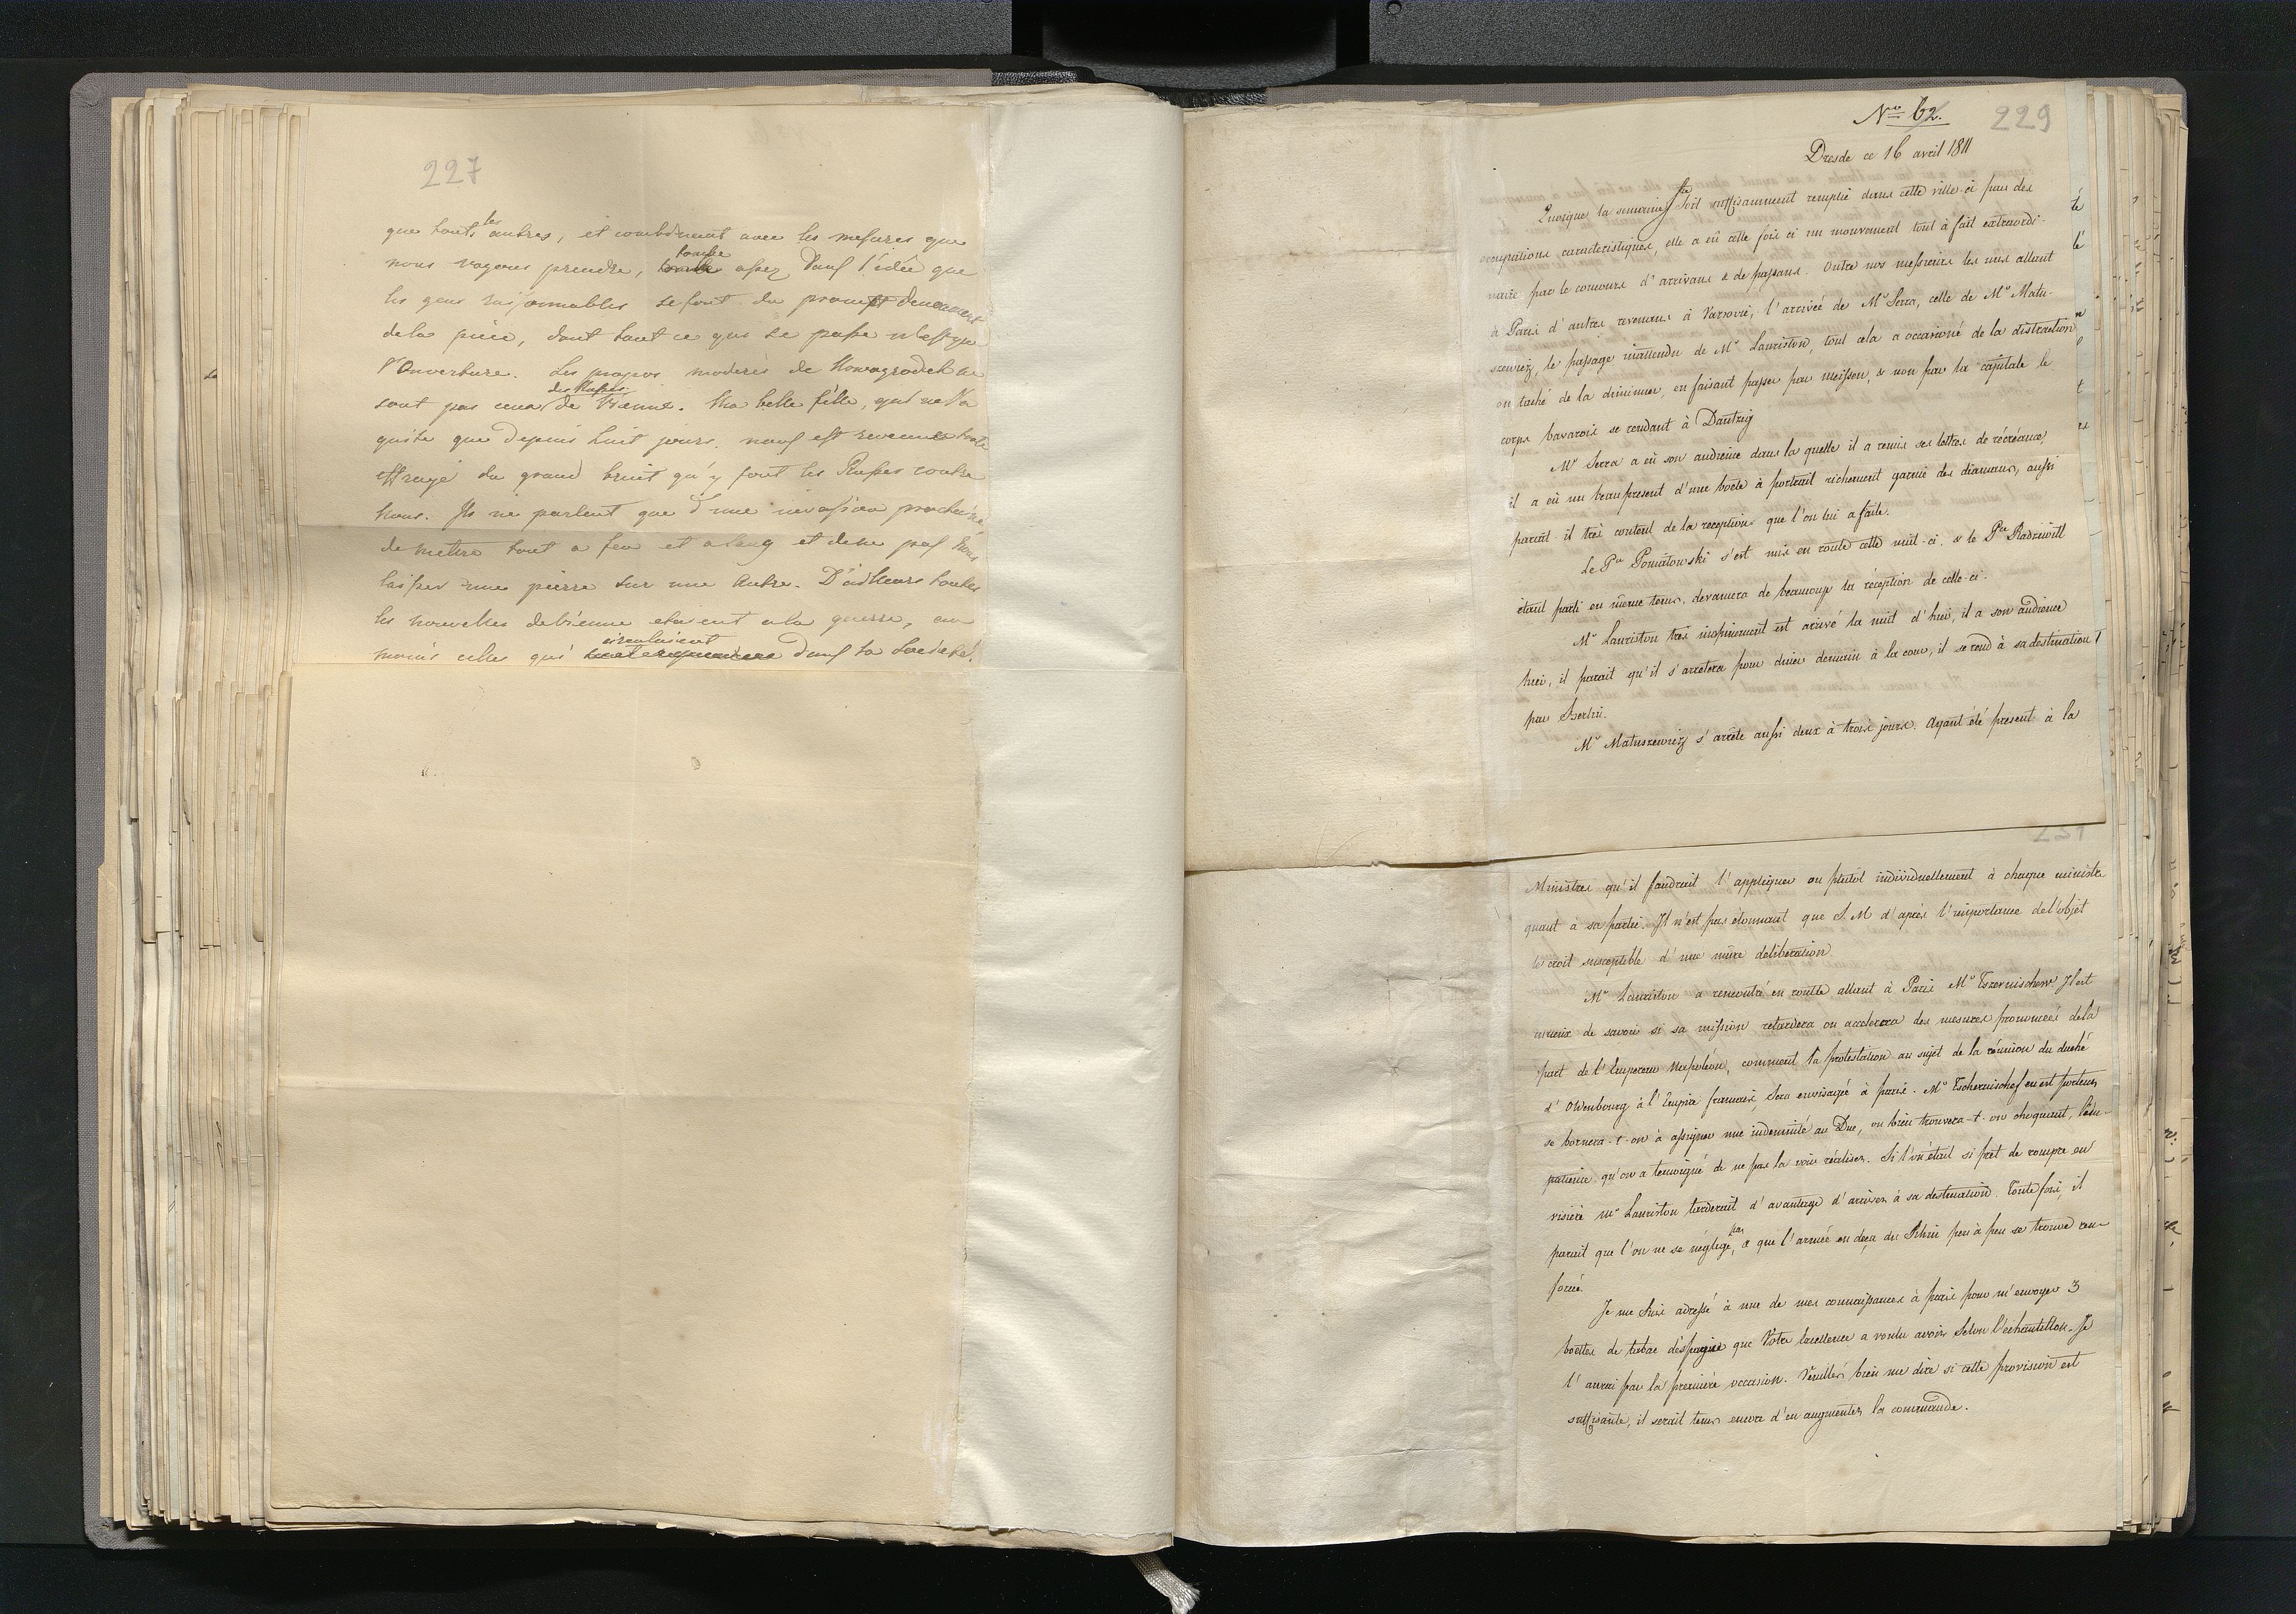 227
que touts les autres, et combinent avec les mesures que
nous voyons prendre, tombe assez dans l'idée que
les gens raisonnables se font du prompt denouement
de la pièce, dont tout ce qui se passe n'est que
l'Ouverture. Les propos moderés de Nowogrodek ne
sont pas ceux des Russes de Vienne. Ma belle fille, qui ne l'a
quité que depuis huit jours, nous est revenue toute
effrayé du grand bruit qu'y font les Russes contre
nous. Ils ne parlent que d'une invasion prochaine
de mettre tout a feu et a sang et de ne pas nous
laisser une pierre sur une autre. D'ailleurs toutes
les nouvelles de Vienne etaient a la guerre, au
moins celles qui circulaient dans la Société.
Nro 62.
229
Dresde ce 16 avril 1811
Quoique la semaine Ste soit suffisamment remplie dans cette ville-ci par des
occupations caracteristiques, elle a eû cette fois ci un mouvement tout à fait extraordi-
naire par le concours d'arrivans & de passans. Outre nos messieurs les uns allant
à Paris d'autres revenans à Varsovie, l'arrivée de Mr Serra, celle de Mr Matu-
szewicz, le passage inattendu de Mr Lauriston, tout cela a occasionné de la distraction
on taché de la diminuer, en faisant passer par meissen, & non par la capitale le
corps bavarois se rendant à Dantzig
Mr Serra a eû son audience dans la quelle il a remis ses lettres de récréance,
il a eû un beau present d'une boete à portrait richement garnie des diamans, aussi
parait-il très content de la reception que l'on lui a faite.
Le Pce Poniatowski s'est mis en route cette nuit-ci, & le Pce Radziwill
étant parti en même tems, devancera de beaucoup la réception de celle-ci.
Mr Lauriston très inopinement est arrivé la nuit d'hier, il a son audience
hier, il parait qu'il s'arretera pour diner demain à la cour, il se rend à sa destination
par Berlin.
Mr Matuszewicz s'arrête aussi deux à trois jours. Ayant été present à la
231
Ministres qu'il faudrait l'appliquer ou plutot individuellement à chaque ministre
quant à sa partie. Il n'est pas étonnant que S. M d'après l'importance de l'objet
le croit susceptible d'une mûre deliberation
Mr Lauriston a rencontré en routte allant à Paris Mr Tszernischew Il est
curieux de savoir si sa mission retardera ou accelerera des mesures prononcées de la
part de l'Empereur Napoléon, comment la protestation au sujet de la réunion du duché
d'Oldenbourg à l'Empire francais, sera envisagée à paris. Mr Tschernischef en est porteur
se bornera-t-on à assigner une indemnité au Duc, ou bien trouvera-t-on choquant, l'im-
patience qu'on a temoigné de ne pas la voir réaliser. Si l'on était si prêt de rompre en
visière mr Lauriston tarderait d'avantage d'arriver à sa destination. Toute fois, il
parait que l'on ne se néglige pas, & que l'armée en deça du Rhin peu à peu se trouve ren-
forcée.
Je me suis adressé à une de mes connaissances à paris pour m'envoyer 3
boëttes de tabac d'éspagne que Votre Excellence a voulu avoir selon l'echantillon. Je
l'aurai par la première occasion. Veuillés bien me dire si cette provision est
suffisante, il serait tems encore d'en augmenter la commande.